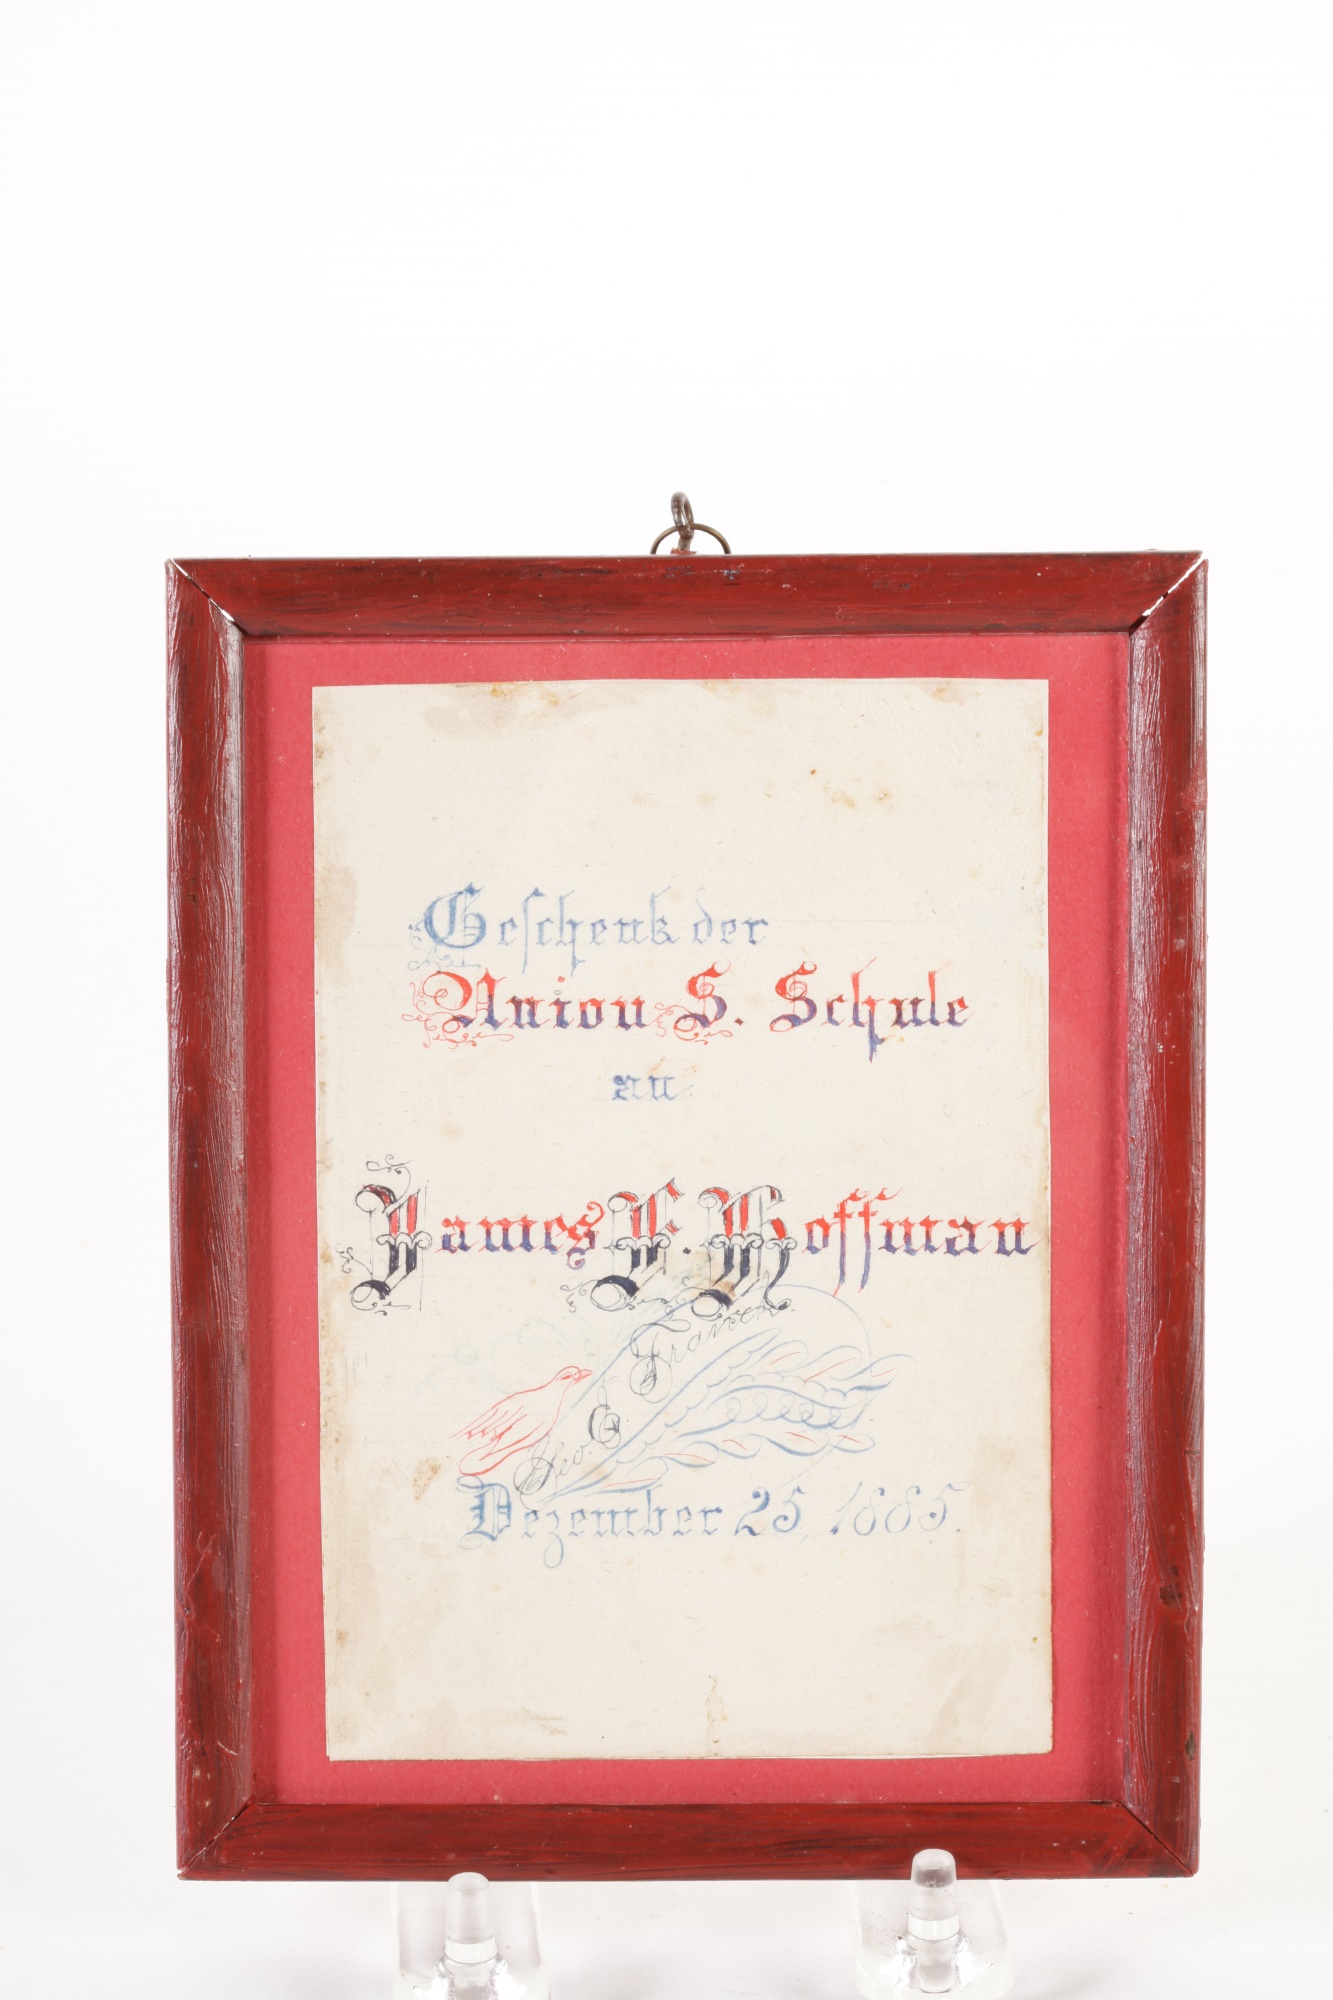 Geschenk der
Union S. Schule
an
James F. Hoffman
Geo. E. Fransen.
Dezember 25, 1885.